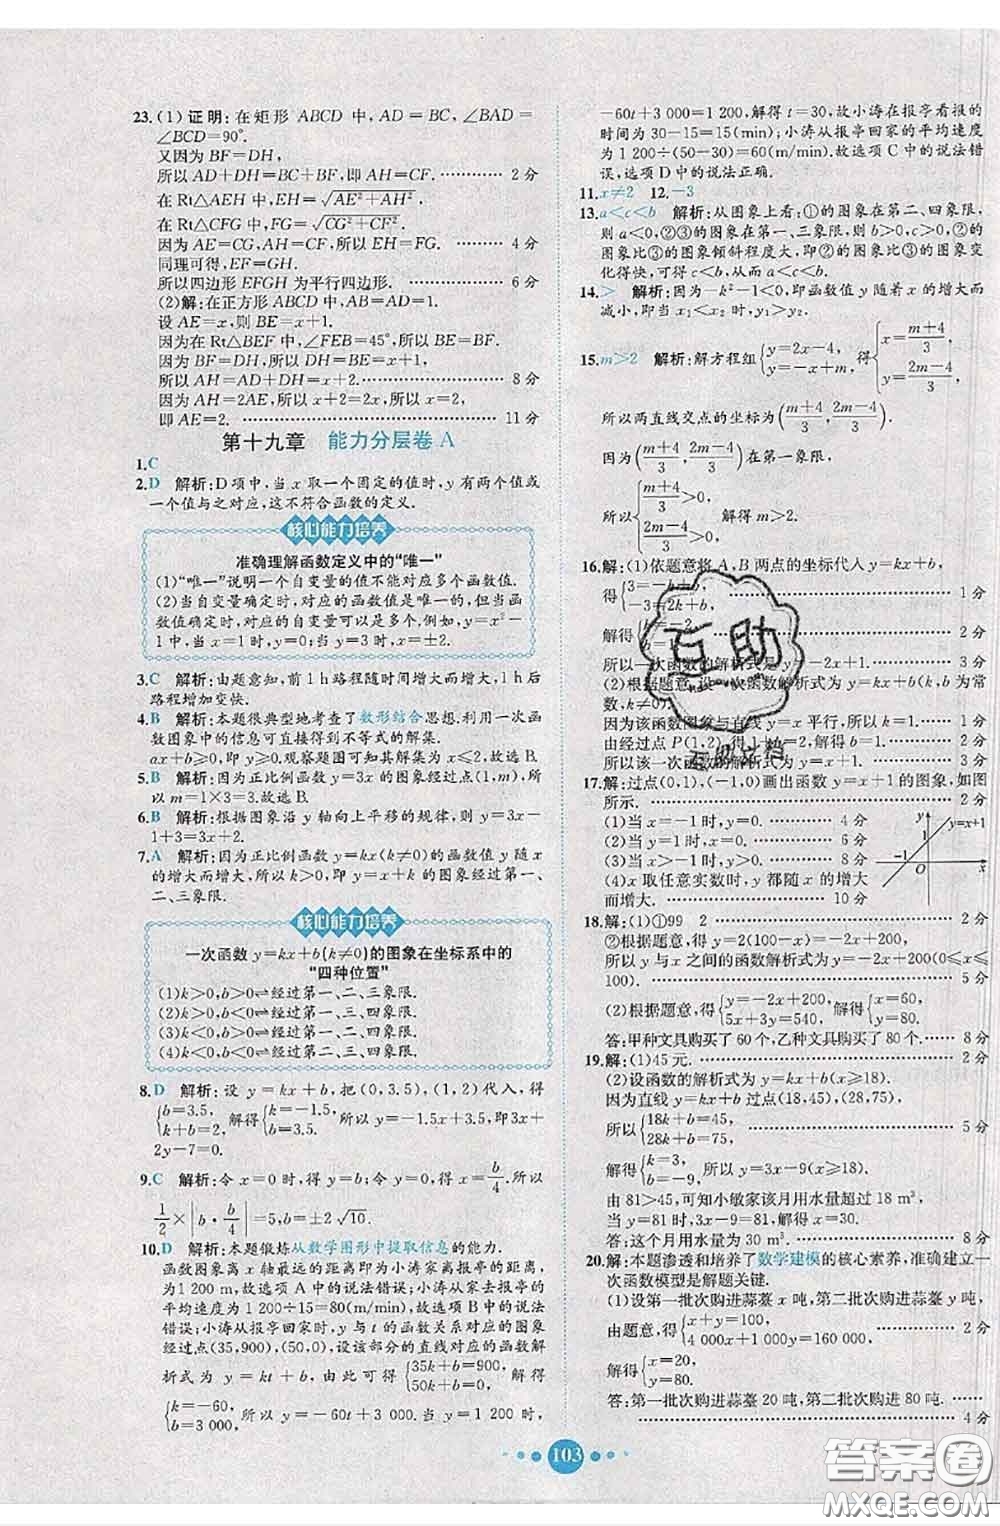 23.(1)证明:在矩形 ABCD 中,AD=BC,∠BAD=
∠BCD=90°.
又因为 BF=DH,
所以 AD+DH=BC+BF,即 AH=CF. ………… 2 分
在 Rt△AEH 中,EH=√(AE²+AH²).
在 Rt△CFG 中,FG=√(CG²+CF²).
因为 AE=CG,AH=CF,所以 EH=FG. ………… 4 分
同理可得,EF=HG.
所以四边形 EFGH 为平行四边形. ………… 6 分
(2)解:在正方形 ABCD 中,AB=AD=1.
设 AE=x,则 BE=x+1.
因为在 Rt△BEF 中,∠FEB=45°,所以 BE=BF.
因为 BF=DH,所以 DH=BE=x+1,
所以 AH=AD+DH=x+2. ………… 8 分
因为 AH=2AE,所以 x+2=2x,所以 x=2,
即 AE=2. ………… 11 分
第十九章 能力分层卷 A
1.C
2.D 解析:D 项中,当 x 取一个固定的值时,y 有两个值或
一个值与之对应,这不符合函数的定义.
核心能力培养
准确理解函数定义中的“唯一”
(1)“唯一”说明一个自变量的值不能对应多个函数值.
(2)当自变量确定时,对应的函数值是唯一的,但当函
数值确定时,对应的自变量可以是多个,例如,y=x²-
1 中,当 x=1 时,y=0;当 y=3 时,x=±2.
3.C 解析:由题意知,前 1 h 路程随时间增大而增大,1 h 后
路程增加变快.
4.B 解析:本题很典型地考查了数形结合思想.利用一次函
数图象中的信息可直接得到不等式的解集.
ax+b≥0,即要观察图象可得解集为 x≤2,故选 B.
5.B 解析:因为正比例函数 y=3x 的图象经过点(1,m),所
以 m=1×3=3,故选 B.
6.B 解析:根据图象沿 y 轴向上平移的规律,则 y=3x-
1+3=3x+2.
7.A 解析:因为正比例函数 y=kx(k≠0)的函数值 y 随 x
的增大而增大,所以 k>0,即 y=kx+k 的图象经过第一、
二、三象限.
核心能力培养
一次函数 y=kx+b(k≠0)的图象在坐标系中的
“四种位置”
(1)k>0,b>0⇌经过第一、二、三象限.
(2)k>0,b<0⇌经过第一、三、四象限.
(3)k<0,b>0⇌经过第一、二、四象限.
(4)k<0,b<0⇌经过第二、三、四象限.
8.D 解析:设 y=kx+b,把(0,3.5),(1,2)代入,得
{b=3.5, k+b=2, 解得{k=-1.5, b=3.5, 所以 y=-1.5x+3.5,即 3x+
2y-7=0.
9.C 解析:令 x=0 时,得 y=b;令 y=0 时,得 x=b/4.所以
1/2×|b·b/4|=5,b=±2√10.
10.D 解析:本题锻炼从数学图形中提取信息的能力.
函数图象离 x 轴最远的距离即为小涛家离报亭的距离,
为 1 200 m,故选项 A 中的说法错误;小涛从家去报亭的
平均速度为 1 200÷15=80(m/min),故选项 B 中的说法
错误;小涛从报亭回家时,y 与 t 的函数关系对应的图象
经过点(35,900),(50,0),设该部分的直线对应的函数解
析式为 y=kt+b(k≠0),则{35k+b=900, 50k+b=0, 解得
{k=-60, b=3 000, 所以 y=-60t+3 000.当 y=1 200 时,
-60t+3 000=1 200,解得 t=30,故小涛在报亭看报的
时间为 30-15=15(min);小涛从报亭回家的平均速度
为 1 200÷(50-30)=60(m/min),故选项 C 中的说法错
误,选项 D 中的说法正确.
11.x≠2 12.-3
13.a<c<b 解析:从图象上看:①的图象在第二、四象限,
则 a<0,②③的图象在第一、三象限,则 b>0,c>0,②的
图象比③的图象倾斜程度大,即②的图象比③的图象变
化得快,可得 c<b,从而 a<c<b.
14.> 解析:因为-k²-1<0,即函数值 y 随着 x 的增大而
减小,即当 x₁<x₂ 时,y₁>y₂.
15.m>2 解析:解方程组{y=2x-4, y=-x+m, 得{x=(m+4)/3, y=(2m-4)/3,
所以两直线交点的坐标为((m+4)/3,(2m-4)/3).
因为((m+4)/3,(2m-4)/3)在第一象限,
所以{(m+4)/3>0, (2m-4)/3>0, 解得 m>2.
16.解:(1)依题意将 A,B 两点的坐标代入 y=kx+b,
得{3=-k+b, -3=2k+b, ………… 1 分
解得{ ………… 2 分
所以一次函数的解析式是 y= ………… 3 分
(2)根据题意,设一次函数解析式为 y=kx+b(k,b 为常
数,k≠0).
因为该函数图象与直线 y=x 平行,所以 k=1. ………… 1 分
由经过点 P(1,2),得 1+b=2,解得 b=1. ………… 2 分
所以该一次函数的解析式为 y=x+1. ………… 3 分
17.解:过点(0,1),(-1,0)画出函数 y=x+1 的图象,如图
所示. ………… 2 分
(1)当 x=-1 时,y=0. ………… 4 分
(2)当 x=1 时,y=2. ………… 6 分
(3)当 x>-1 时,y>0. ………… 8 分
(4)x 取任意实数时,y 都随 x 的增大
而增大. ………… 10 分
y
y=x+1
1
-1
O
x
18.解:(1)①99 2 ………… 2 分
②根据题意,得 y=2(100-x)=-2x+200,
所以 y 与 x 之间的函数解析式为 y=-2x+200(0≤x≤
100). ………… 5 分
(2)根据题意,得{y=-2x+200, 5x+3y=540, 解得{x=60, y=80.
答:甲种文具购买了 60 个,乙种文具购买了 80 个. …… 8 分
19.解:(1)45 元. ………… 2 分
(2)设函数的解析式为 y=kx+b(x>18).
因为直线 y=kx+b 过点(18,45),(28,75),
所以{18k+b=45, 28k+b=75, ………… 5 分
解得{k=3, b=-9, 所以 y=3x-9(x>18).
由 81>45,可知小敏家该月用水量超过 18 m³,
当 y=81 时,3x-9=81,x=30.
答:这个月用水量为 30 m³. ………… 8 分
20.解:本题渗透和培养了数学建模的核心素养,准确建立一
次函数模型是解题关键.
(1)设第一批次购进蒜薹 x 吨,第二批次购进蒜薹 y 吨,
由题意,得{x+y=100, 4 000x+1 000y=160 000, ………… 2 分
解得{x=20, y=80.
答:第一批次购进蒜薹 20 吨,第二批次购进 80 吨. ……
………… 4 分
103
互助
互助文档
答案圈
MXQE.COM